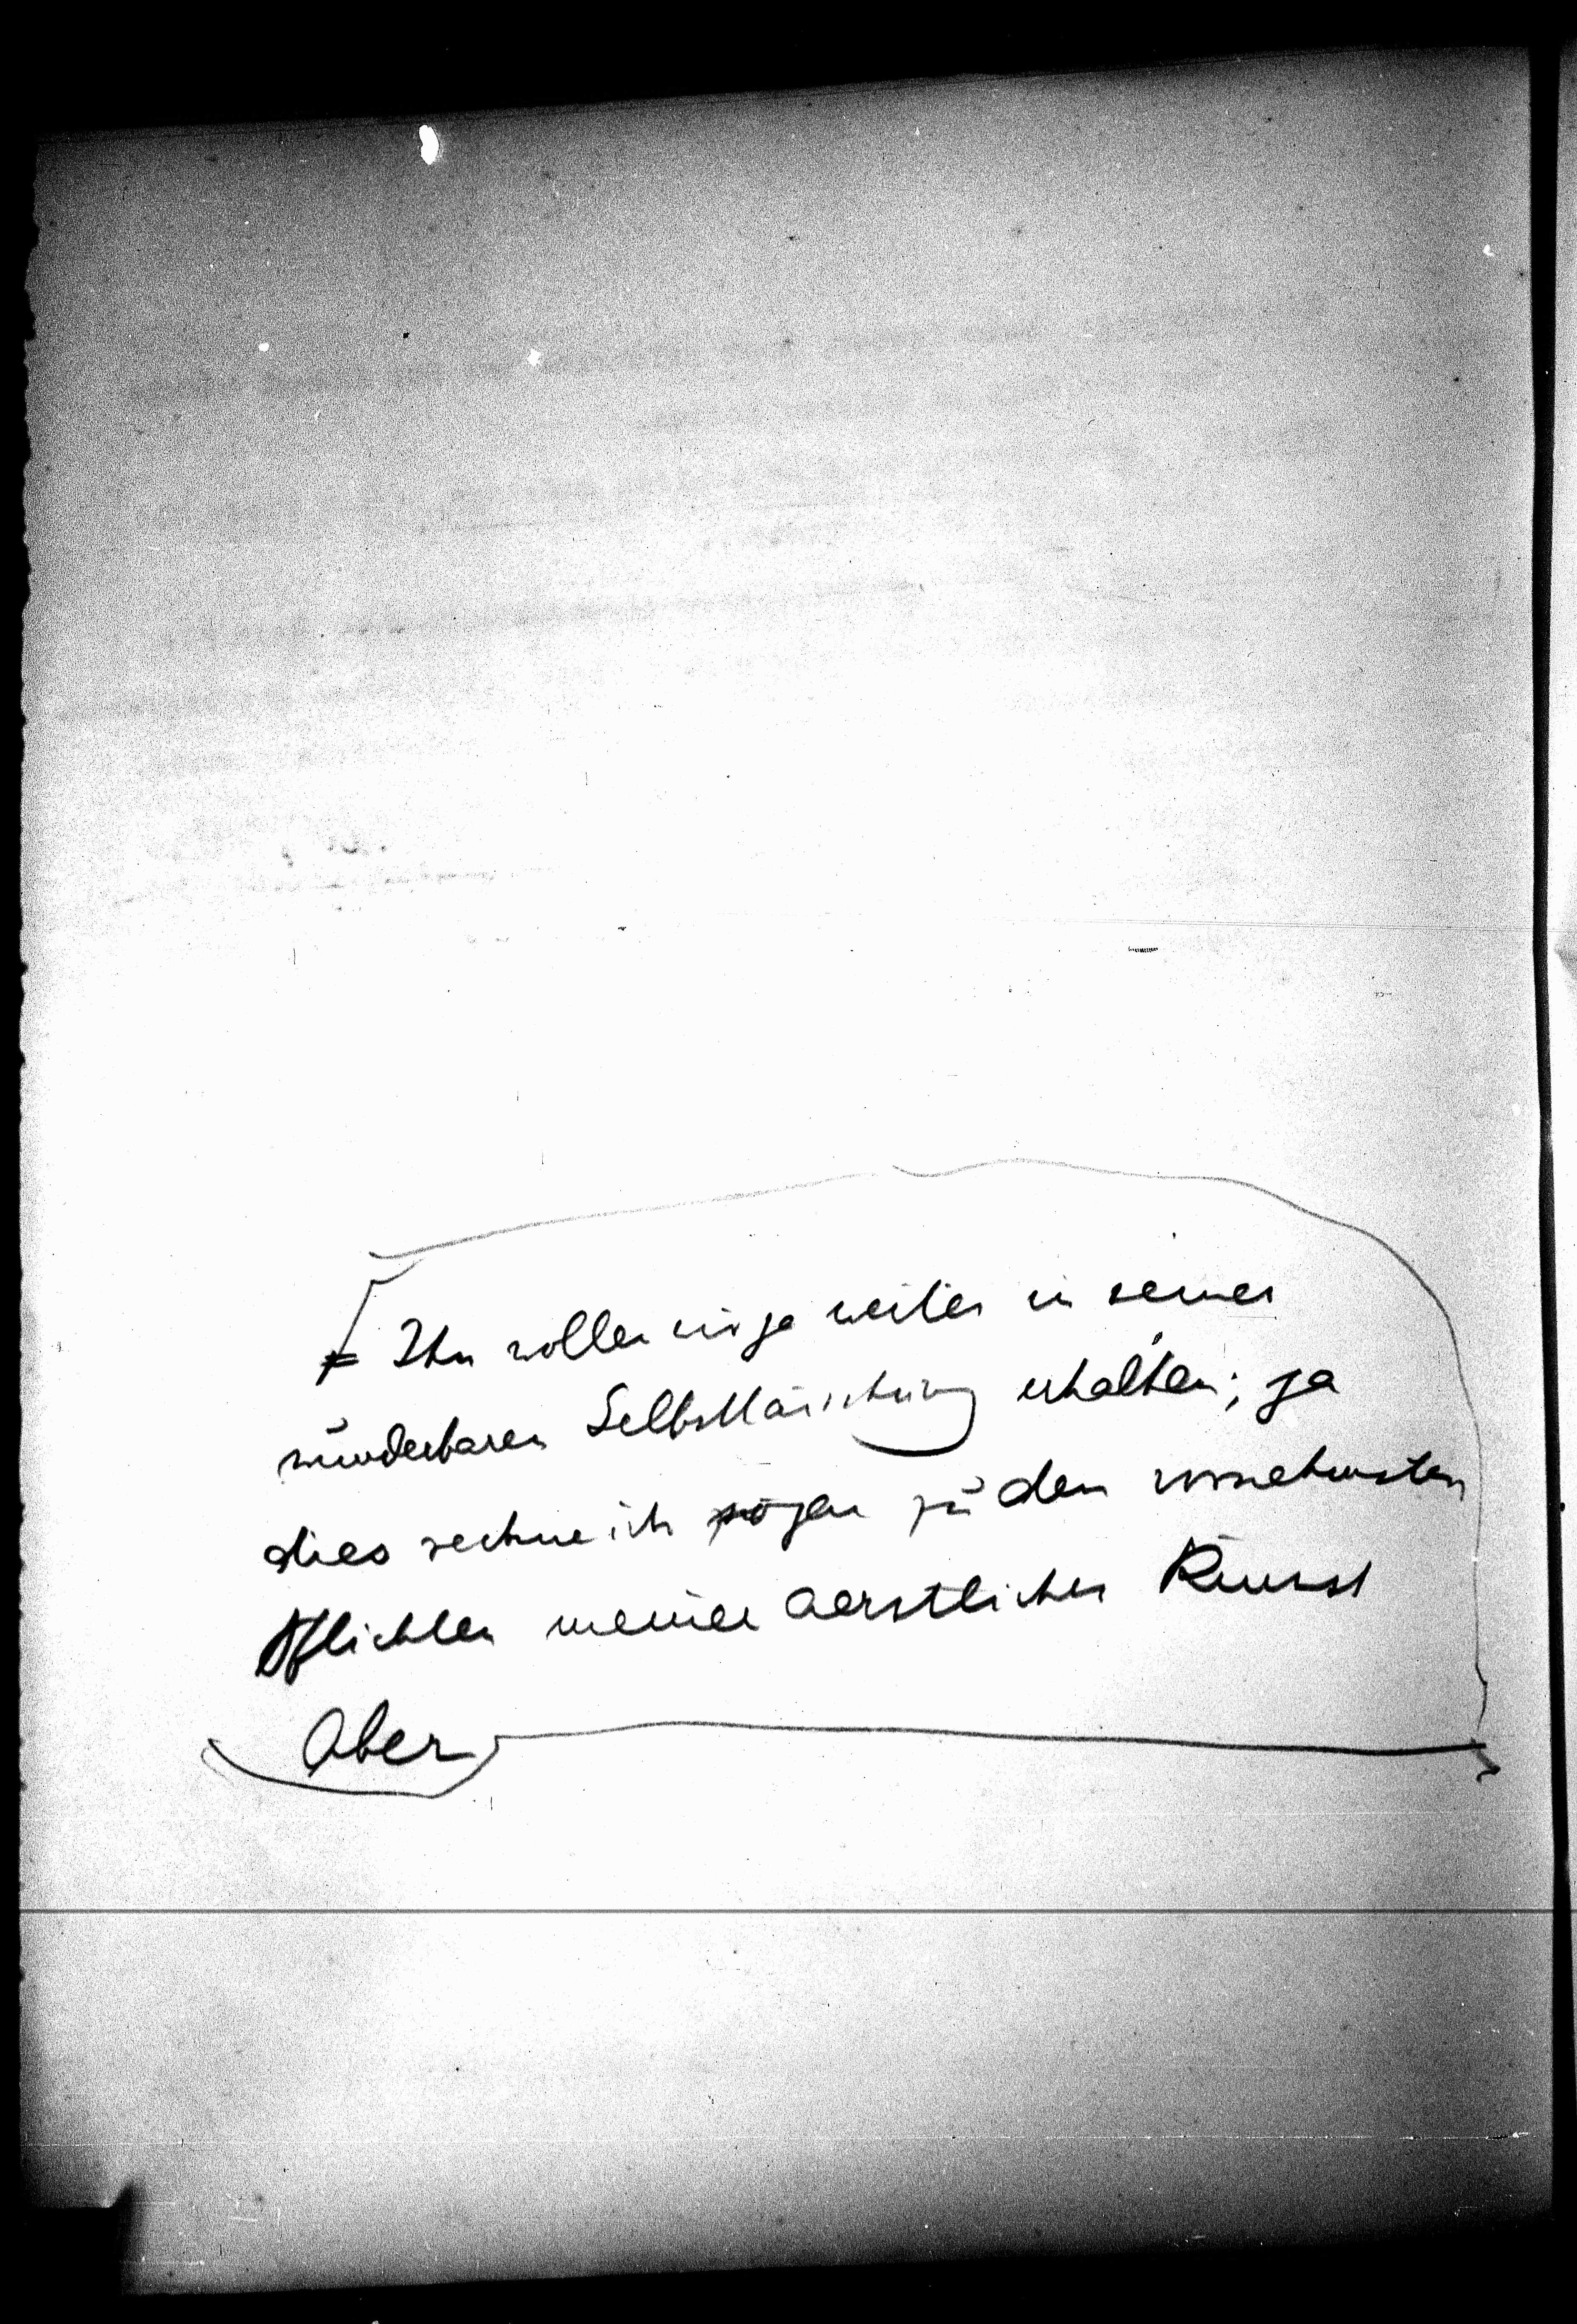 Ihn wollen wir ja weiter in seiner
wunderbaren Selbsttäuschung erhalten; ja
dies rechne ich sogar zu den vornehmsten
Pflichten meiner aerztlichen Kunst
Aber